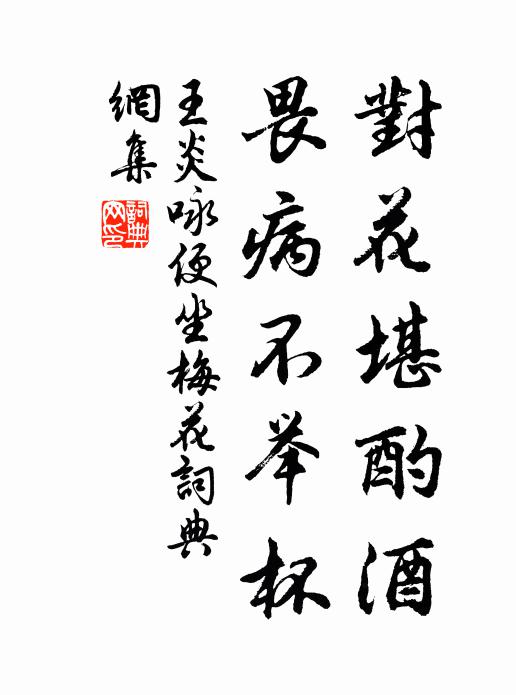 對花堪酌酒
畏病不举杯
王炎咏便坐梅花詞典
網集
詞典网印